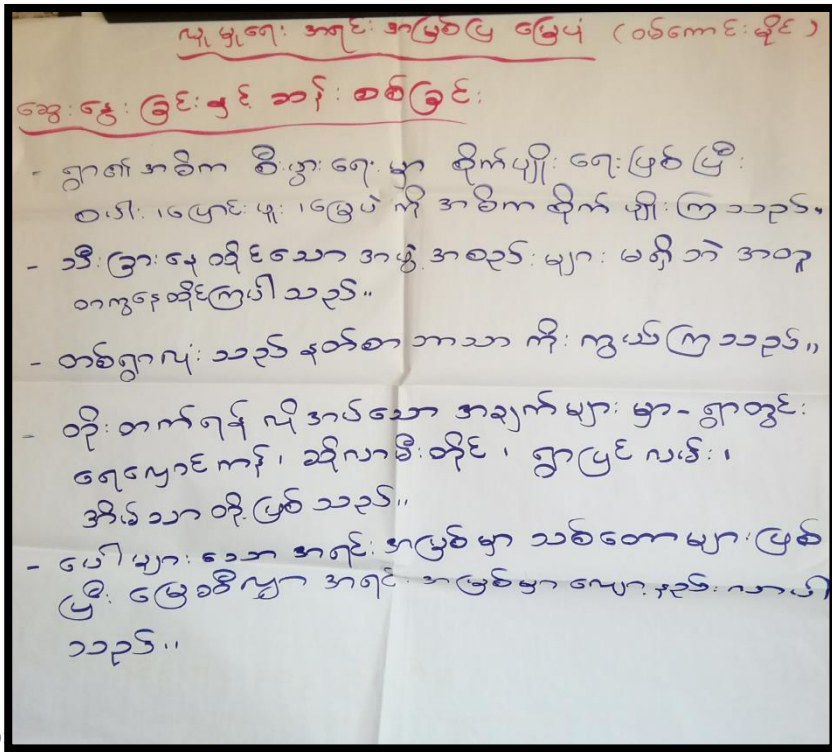 လူမှုရေး အရင်းအမြစ်ပြ မြေပုံ (ဝမ်ကောင်းမိုင်)
ဆွေးနွေးခြင်းနှင့် ဆန်းစစ်ခြင်း
- ရွာ၏ အဓိက စီးပွားရေးမှာ စိုက်ပျိုးရေးဖြစ်ပြီး
စပါး၊ ပြောင်းဖူး၊ မြေပဲ ကို အဓိက စိုက်ပျိုးကြသည်။
- သီးခြားနေထိုင်သော အဖွဲ့အစည်းများ မရှိဘဲ အတူ
တကွနေထိုင်ကြပါသည်။
- တစ်ရွာလုံးသည် နတ်စာ ဘာသာ ကိုးကွယ်ကြသည်။
- တိုးတက်ရန် လိုအပ်သော အချက်များမှာ - ရွာတွင်း
ရေလှောင်ကန်၊ ဆိုလာမီးတိုင်၊ ရွာပြင်လမ်း၊
အိမ်သာ တို့ဖြစ်သည်။
- ပေါများသော အရင်းအမြစ်မှာ သစ်တောများဖြစ်
ပြီး မြေဩဇာ အရင်းအမြစ်မှာ လျော့နည်းလာပါ
သည်။